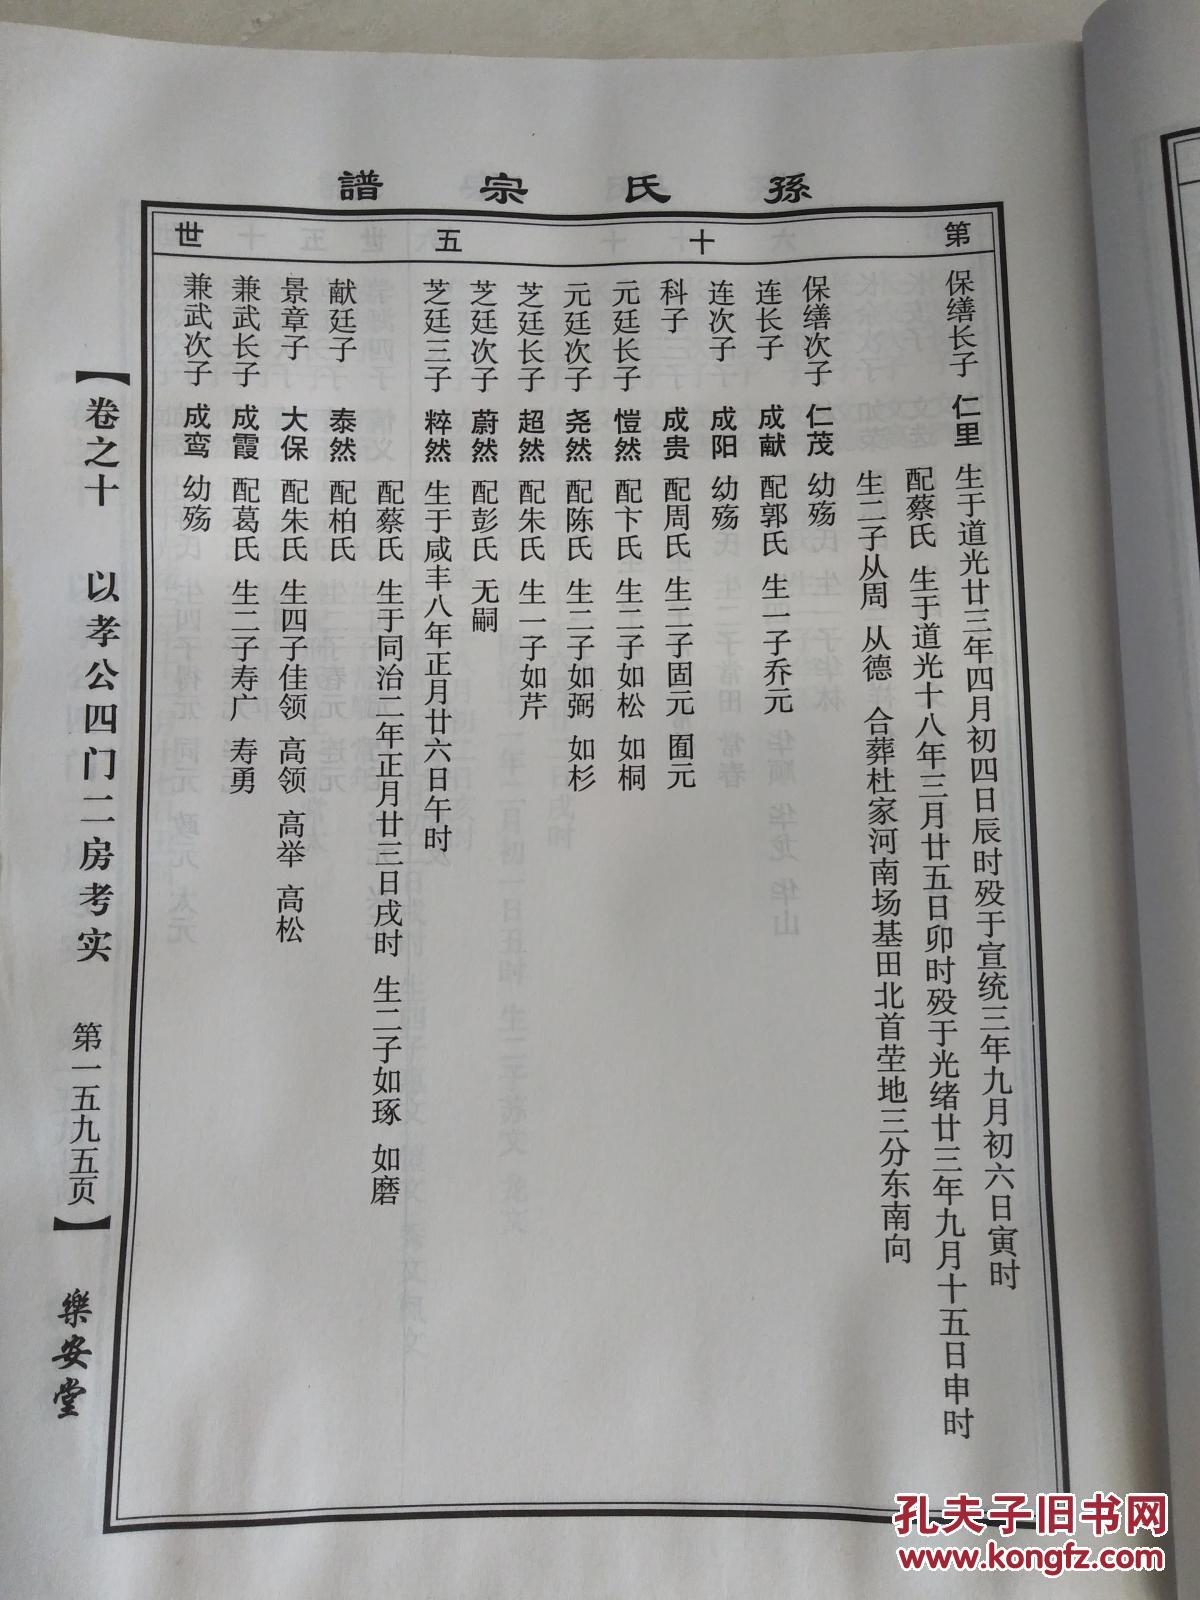 孫氏宗譜
第十五世
保缮长子 仁里 生于道光廿三年四月初四日辰时殁于宣统三年九月初六日寅时
配蔡氏 生于道光十八年三月廿五日卯时殁于光绪廿三年九月十五日申时
生二子从周 从德 合葬杜家河南场基田北首茔地三分东南向
保缮次子 仁茂 幼殇
连长子 成献 配郭氏 生一子乔元
连次子 成阳 幼殇
科子 成贵 配周氏 生二子固元 囿元
元廷长子 恺然 配卞氏 生二子如松 如桐
元廷次子 尧然 配陈氏 生二子如弼 如杉
芝廷长子 超然 配朱氏 生一子如芹
芝廷次子 蔚然 配彭氏 无嗣
芝廷三子 粹然 生于咸丰八年正月廿六日午时
配蔡氏 生于同治二年正月廿三日戌时 生二子如琢 如磨
献廷子 泰然 配柏氏
景章子 大保 配朱氏 生四子佳领 高领 高举 高松
兼武长子 成霞 配葛氏 生二子寿广 寿勇
兼武次子 成鸾 幼殇
【卷之十 以孝公四门二房考实 第一五九五页】
樂安堂
孔夫子旧书网
www.kongfz.com